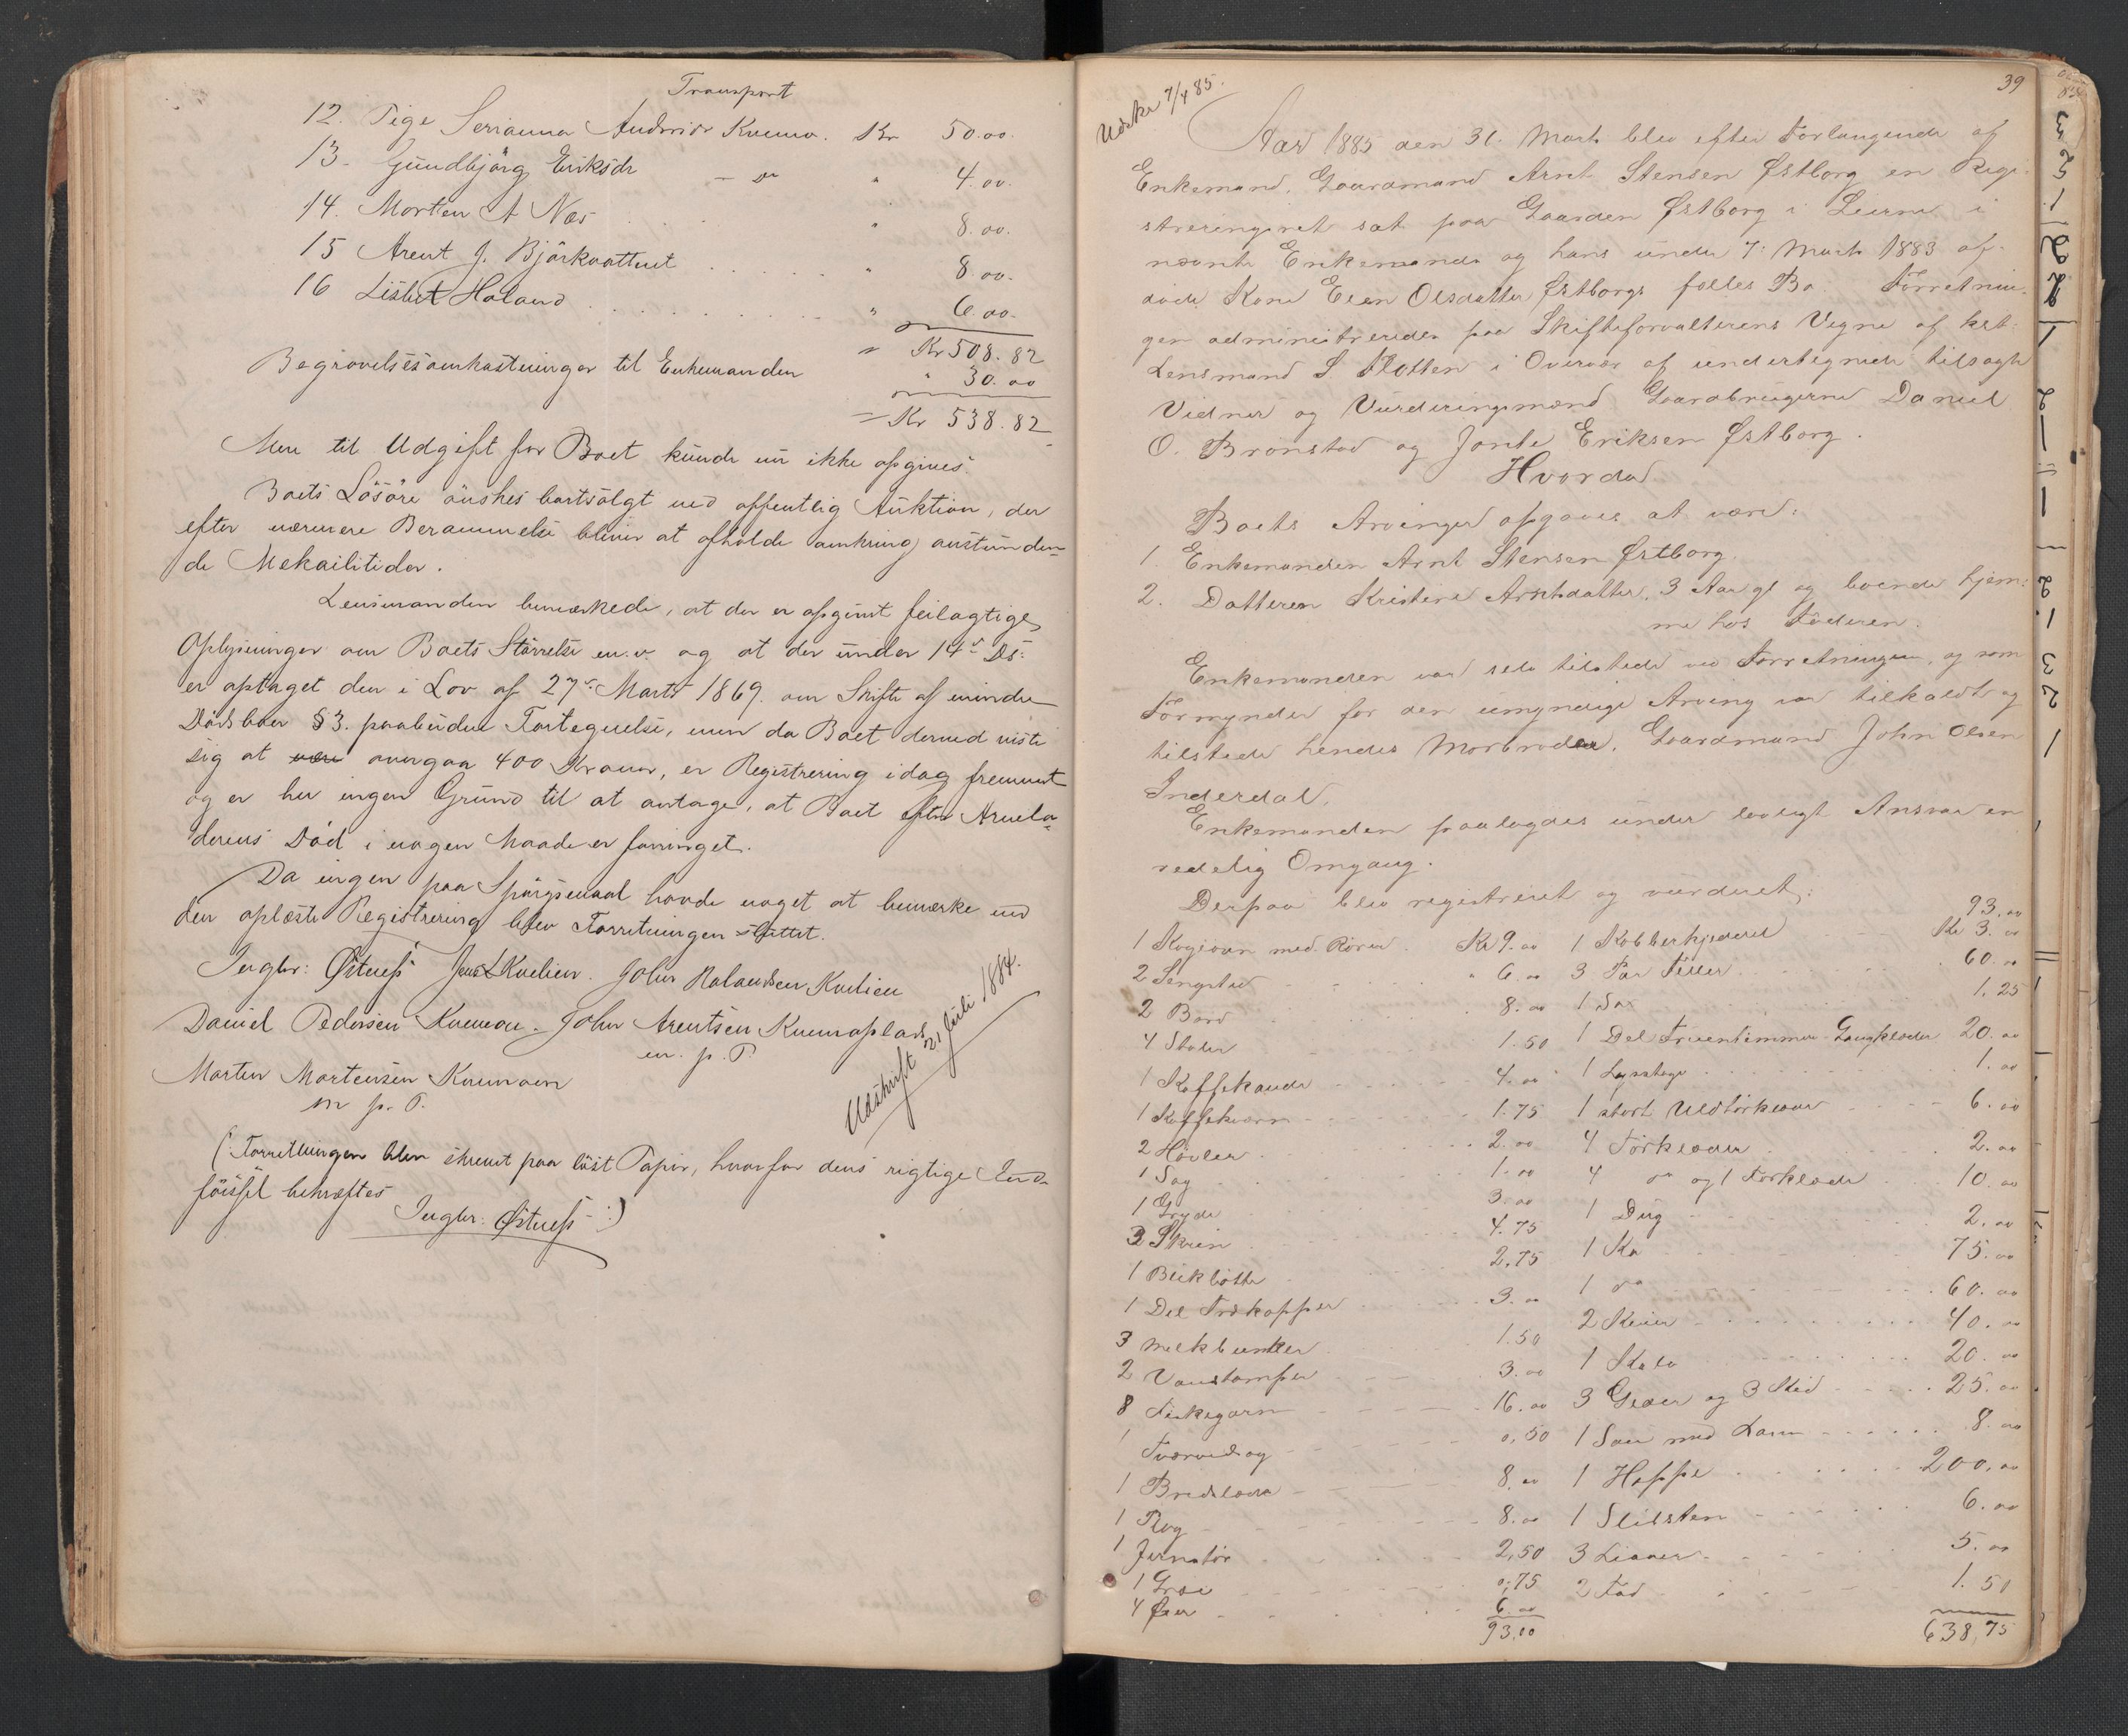 Transport
12. Pige Serianna Andersdr Kvemo. Kr 50.00.
13. Gundbjørg Eriksdr - Do " 4.00.
14. Morten A Næs " 8.00.
15 Arent J. Bjørkvattnet " 8.00.
16 Lisbet Haland " 6.00.
" Kr 508.82
Begravelsesomkostninger til Enkemanden " 30.00
= Kr 538.82
Mere til Udgift for Boet kunde nu ikke opgives.
Boets Løsøre ønskes bortsolgt ved offentlig Auktion, der
efter nærmere Berammelse bliver at afholde omkring anstunden-
de Mekailitider.
Lensmanden bemærkede, at der er opgivet feilagtige
Oplysninger om Boets Størrelse m.v. og at der under 14de Ds.
er optaget den i Lov af 27de Marts 1869 om Skifte af mindre
Dødsboer § 3. paabudne Fortegnelse, men da Boet derved viste
sig at være overgaa 400 Kroner, er Registrering idag fremmet
og er her ingen Grund til at antage, at Boet efter Arvela-
derens Død i nogen Maade er forringet.
Da ingen paa Spørgsmaal havde noget at bemærke ved
den oplæste Registrering blev Forretningen sluttet.
Ingbr: Østness Jens L Kvelien. John Rolandsen Kvelien
Daniel Pedersen Kvemoe. John Arentsen Kvemoplads
m. p. P.
Morten Mortensen Kvemoen
m p. P.
Udskrift 21 Juli 1884.
(Forretningen blev skrevet paa løst Papir, hvorfor dens rigtige Ind-
førsel bekræftes
Ingbr: Østness :)
39
Udskr 7/4 85.
Aar 1885 den 31. Marts blev efter Forlangende af
Enkemand, Gaardmand Arnt Stensen Østborg en Regi-
streringsret sat paa Gaarden Østborg i Lierne i
nævnte Enkemands og hans under 7. Marts 1883 af-
døde Kone Elen Olsdatter Østborgs fælles Bo. Forretnin-
gen administreredes paa Skifteforvalterens Vegne af kst.
Lensmand S. Flotten i Overvær af undertegnede tilsagte
Vidner og Vurderingsmænd Gaardbrugerne Daniel
O. Brønstad og Jonte Eriksen Østborg.
Hvorda
Boets Arvinger opgaves at være:
1. Enkemanden Arnt Stensen Østborg.
2. Datteren Kristine Arntsdatter, 3 Aar gl og boende hjem-
me hos Faderen.
Enkemanden var selv tilstede ved Forretningen, og som
Formynder for den umyndige Arving var tilkaldt og
tilstede hendes Morbroder, Gaardmand John Olsen
Inderdal.
Enkemanden paalagdes under lovligt Ansvar en
redelig Omgang.
Derpaa blev registreret og vurderet:
93.00
1 Kogeovn med Rører. Kr 9.00 1 Kobberkjedel Kr 3.00
2 Sengsted " 6.00 3 Par Feller 60.00
2 Bord 8.00 1 Sax 1.25
4 Stoler 1.50 1 Del Fruentimmer Gangklæder 20.00
1 Kaffekande 4.00 1 Lysestage 1.00
1 Kaffekværn 1.75 1 stort Uldtørklæde 6.00
2 Høvler 2.00 4 Tørklæder 2.00
1 Sag 1.00 4 do og 1 Forklæde 10.00
1 Gryde 3.00 1 Dug 2.00
3 Skrin 4.75 1 Ko 75.00
1 Blikbøtte 2.75 1 do 60.00
1 Del Trækopper 3.00 2 Kvier 40.00
3 Melkbunker 1.50 1 Kalv 20.00
2 Vandstamper 3.00 3 Gjeder og 3 Kid 25.00
8 Fiskegarn 16.00 1 Sau med Lam 8.00
1 Tværvedsag 0,50 1 Hoppe 200.00
1 Bredslæde 8.00 1 Slibsten 6.00
1 Plog 8.00 3 Liaaer 5.00
1 Jernstør 2,50 2 Fad 1.50
1 Græv 0,75
4 Øxer 6.00
93,00 638,75